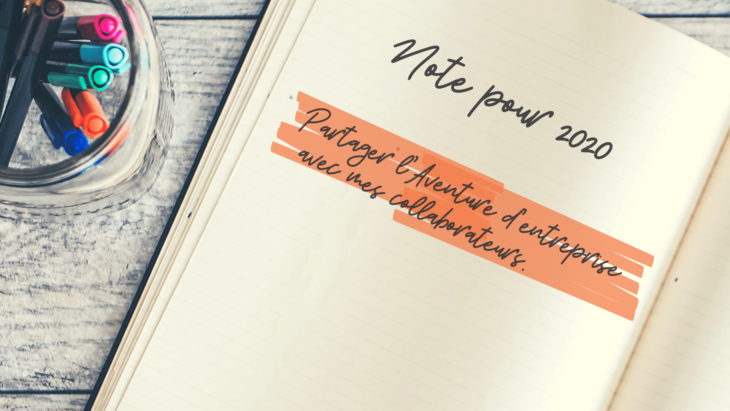 Note pour 2020
Partager l'Aventure d'entreprise
avec mes collaborateurs.